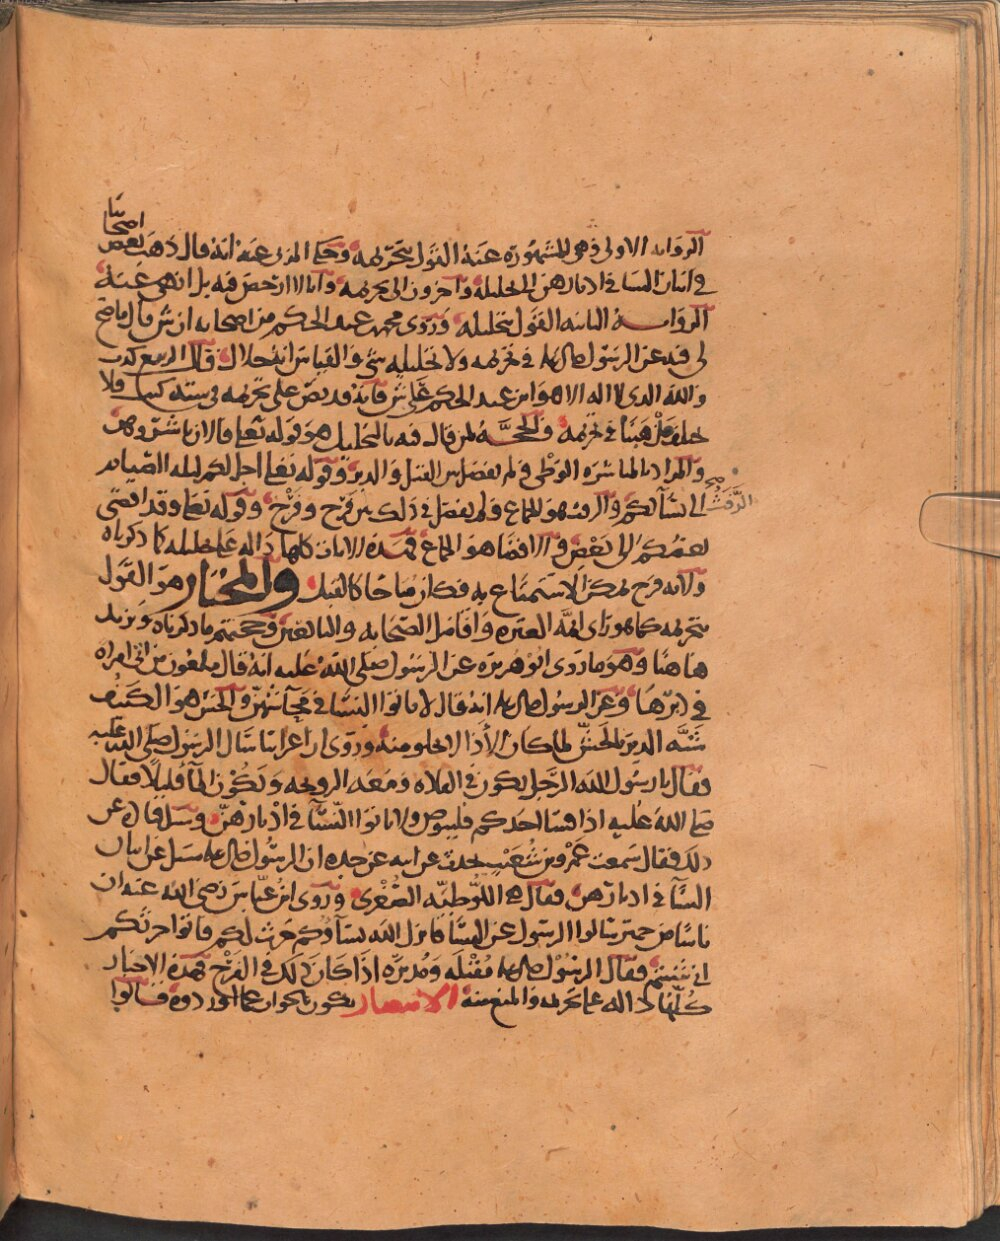 الروايه الاولى وهي المشهوره عنه القول بتحريمه وحكى المزني عنه انه قال ذهب بعض اصحابنا
في اتيان النسا في ادبارهن الى تحليله وآخرون الى تحريمه وأنا لا ارخص فيه بل انهى عنه
الروايه الثانيه القول بتحليله وروى محمد بن عبد الحكم من اصحابه ان ش قال ما صح
لي فيه عن الرسول صلى الله عليه في تحريمه ولا تحليله شي والقياس انه حلال قال الربيع كذب
والله الذي لا اله الا هو ابن عبد الحكم على ش فانه قد نص على تحريمه في سته كتب ولا
خلف هنا في تحريمه والحجه لمن قال فيه بالتحليل هو قوله تعالى فالان باشروهن
والمراد بالمباشره الوطى ولم يفصل بين القبل والدبر وقوله تعالى احل لكم ليله الصيام
الرفث صح
الى نسآئكم والرفث هو الجماع ولم يفصل في ذلك بين فرج وفرج وقوله تعالى وقد افضى
بعضكم الى بعض والافضا هو الجماع فهذه الايات كلها داله على تحليله كما ذكرناه
ولانه فرج يمكن الاستمتاع به فكان مباحا كالقبل والمختار هو القول
بتحريمه كما هو راى ائمة العتره وافاضل الصحابه والتابعين وحجتهم ما ذكرناه ونزيد
هاهنا وهو ما روى ابو هريره عن الرسول صلى الله عليه انه قال ملعون من اتى امراه
في دبرها وعن الرسول صلى الله عليه انه قال لا تاتوا النسا في محآشهن والحش هو الكنف
شبه الدبر بالحش لما كان الأذا لا يخلو منه وروى ان اعرابيا سال الرسول صلى الله عليه
فقال يا رسول الله الرجل يكون في الفلاه ومعه الزوجه وتكون المآ قليلا فقال
صلى الله عليه اذا فسا احدكم فليتوض ولا تاتوا النسآ في ادبارهن وسل قتاده عن
ذلك فقال سمعت عمرو بن شعيب يحدث عن ابيه عن جده ان الرسول صلى الله عليه سئل عن اتيان
النسآ في ادبارهن فقال هي اللوطيه الصغرى وروى ابن عباس رضي الله عنه ان
ناسا من حمير سالوا الرسول عن النسآ فانزل الله نسآؤكم حرث لكم فاتوا حرثكم
انى شئتم فقال الرسول صلى الله عليه مقبله ومدبره اذا كان ذلك في الفرج فهذه الاخبار
كلها داله على تحريمه والمنع منه الانتصار يكون بالجواب عما اوردوه قالوا